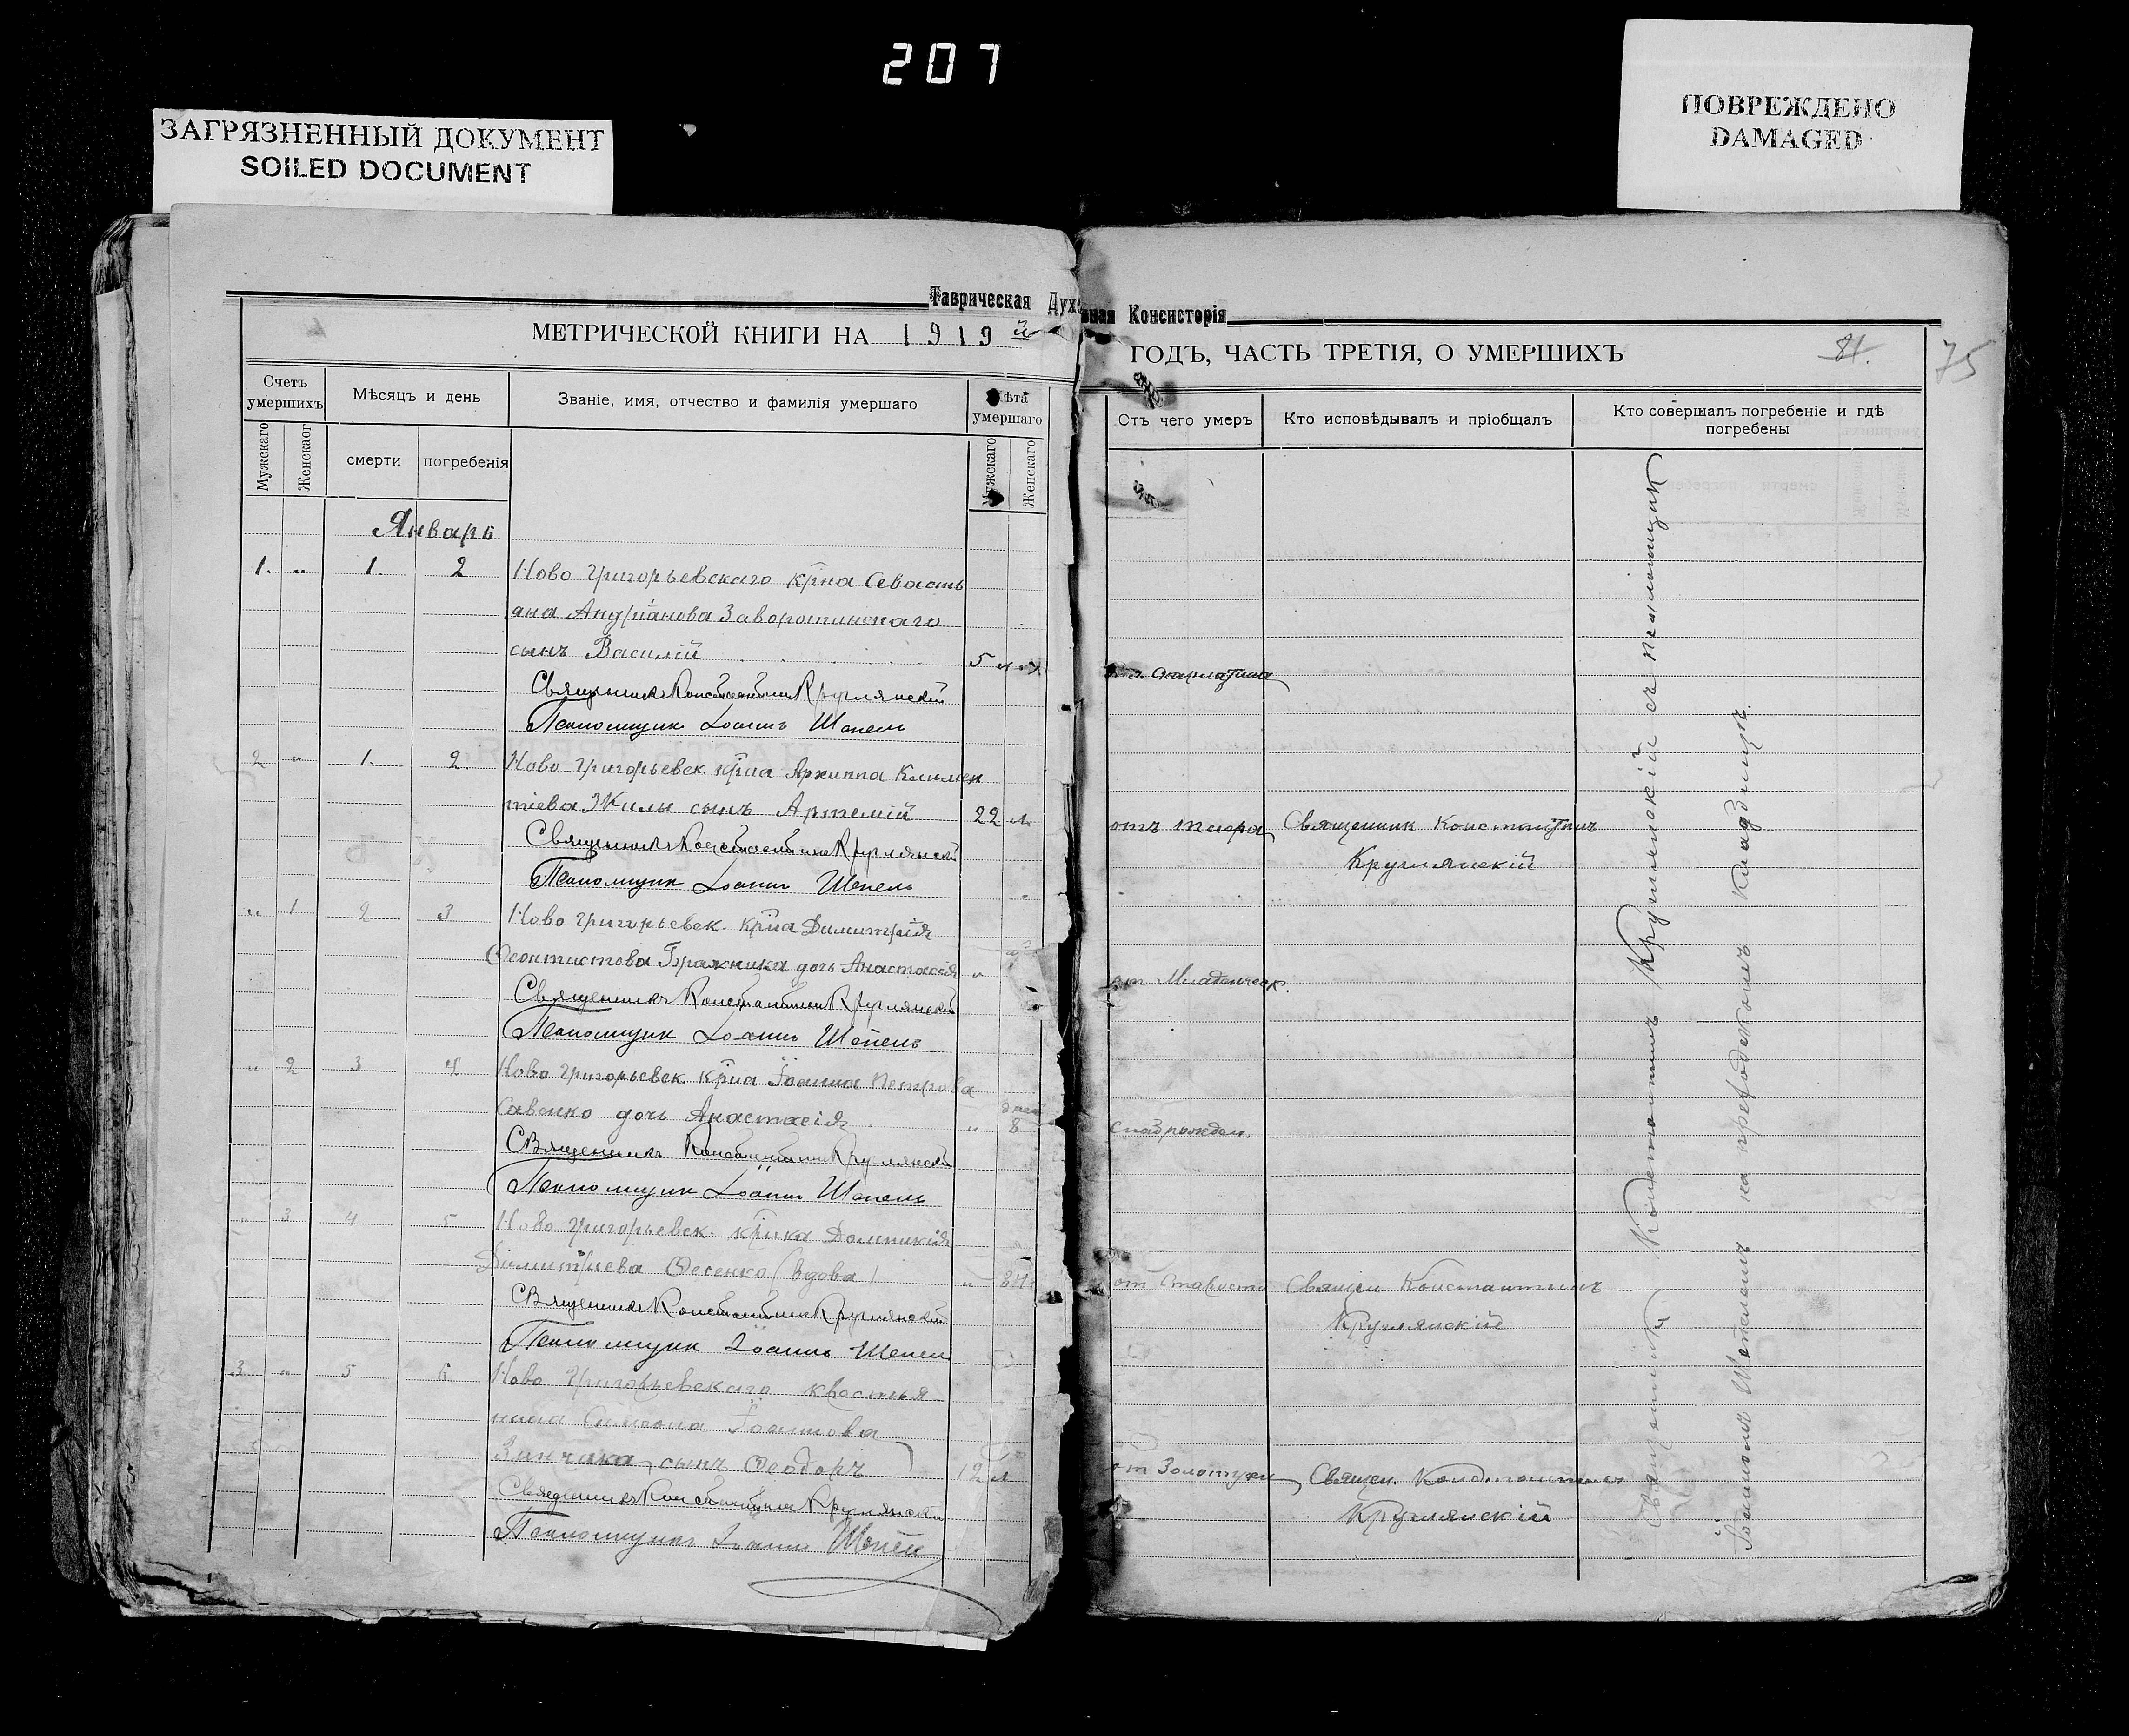 207
ЗАГРЯЗНЕННЫЙ ДОКУМЕНТ
SOILED DOCUMENT
ПОВРЕЖДЕНО
DAMAGED
Таврическая Духовная Консисторія
МЕТРИЧЕСКОЙ КНИГИ НА 1919 й
ГОДЪ, ЧАСТЬ ТРЕТІЯ, О УМЕРШИХЪ
81.
75
Счетъ умершихъ
Мужскаго
Женскаог
Мѣсяцъ и день
смерти
погребенія
Званіе, имя, отчество и фамилія умершаго
Лѣта умершаго
Мужскаго
Женскаго
Отъ чего умеръ
Кто исповѣдывалъ и пріобщалъ
Кто совершалъ погребеніе и гдѣ погребены
Январь
1. " 1. 2 Ново Григорьевскаго кр̃на Севасть
яна Андріанова Заворотинскаго
сынъ Василій 5 л. скарлатина
Священникъ Константинъ Круглянскій
Псаломщик Іоаннъ Шепель
2 " 1. 2. Ново-Григорьевск. кр̃на Архиппа Климен
тіева Жилы сынъ Артемій 22 л. отъ тифа Священник Константинъ
Круглянскій
Священникъ Константинъ Круглянскій
Псаломщик Іоаннъ Шепель
" 1 2 3 Ново Григорьевск. кр̃на Димитрія
Ѳеоктистова Бражника дочь Анастасія " от Младенческ.
Священникъ Константинъ Круглянскій
Псаломщик Іоаннъ Шепель
" 2 3 4 Ново Григорьевск. кр̃на Іоанна Петрова
Савенко дочь Анастасія " дней 8 слаб рожден.
Священникъ Константинъ Круглянскій
Псаломщик Іоаннъ Шепель
" 3 4 5 Ново Григорьевск. кр̃нка Домникія
Димитріева Фесенко (вдова) " от старости Свящеи Константинъ
Круглянскій
Священникъ Константинъ Круглянскій
Псаломщик Іоаннъ Шепель
3 " 5 6 Ново Григорьевскаго крестья
нина Симеона Іоаннова
сынъ Ѳеодоръ 12 л от Золотухи Свящеи. Константинъ
Круглянскій
Священникъ Константинъ Круглянскій
Псаломщикъ Іоаннъ Шепель
Священникъ Константинъ Круглянскій съ псаломщик
Іоанномъ на приходскомъ кладбищѣ.